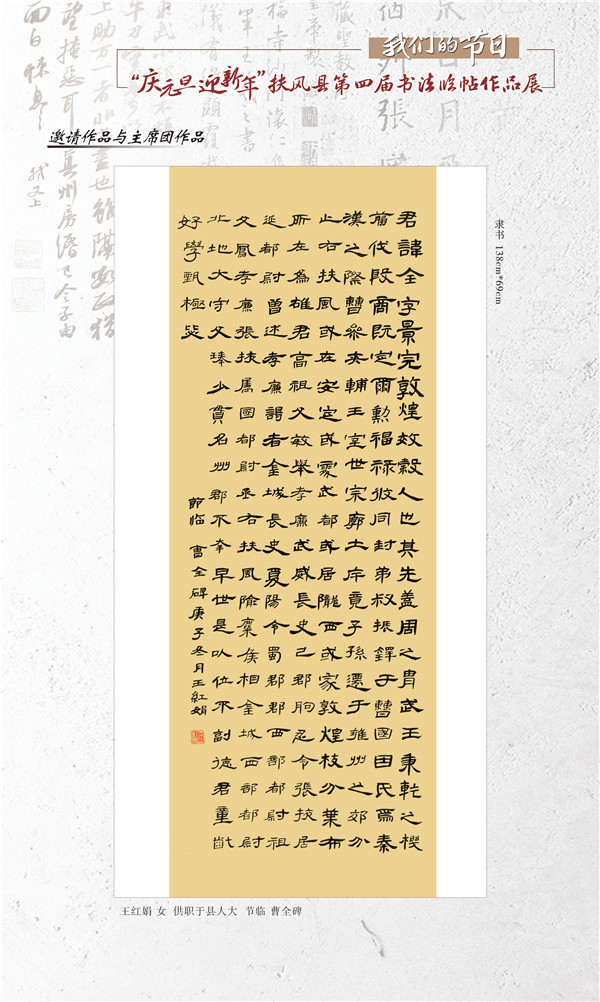 我们的节日
“庆元旦迎新年”扶风县第四届书法临帖作品展
邀请作品与主席团作品
隶书 138cm*69cm
君諱全字景完敦煌效穀人也其先蓋周之胄武王秉乾之機
翦伐殷商既定爾勳福祿攸同封弟叔振鐸于曹國因氏焉秦
漢之際曹參夾輔王室世宗廓土斥竟子孫遷于雍州之郊分
止右扶風或在安定或處武都或居隴西或家敦煌枝分葉布
所在為雄君高祖父敏舉孝廉武威長史巴郡朐忍令張掖居
延都尉曾述孝廉謁者金城長史夏陽令蜀郡郡西部都尉祖
父鳳孝廉張掖屬國都尉丞右扶風隃麋侯相金城西部都尉
北地大守父琫少貫名州郡不幸早世是以位不副德君童齔
好學甄極毖
節临 曹全碑庚子冬月王紅娟
王红娟 女 供职于县人大 节临 曹全碑